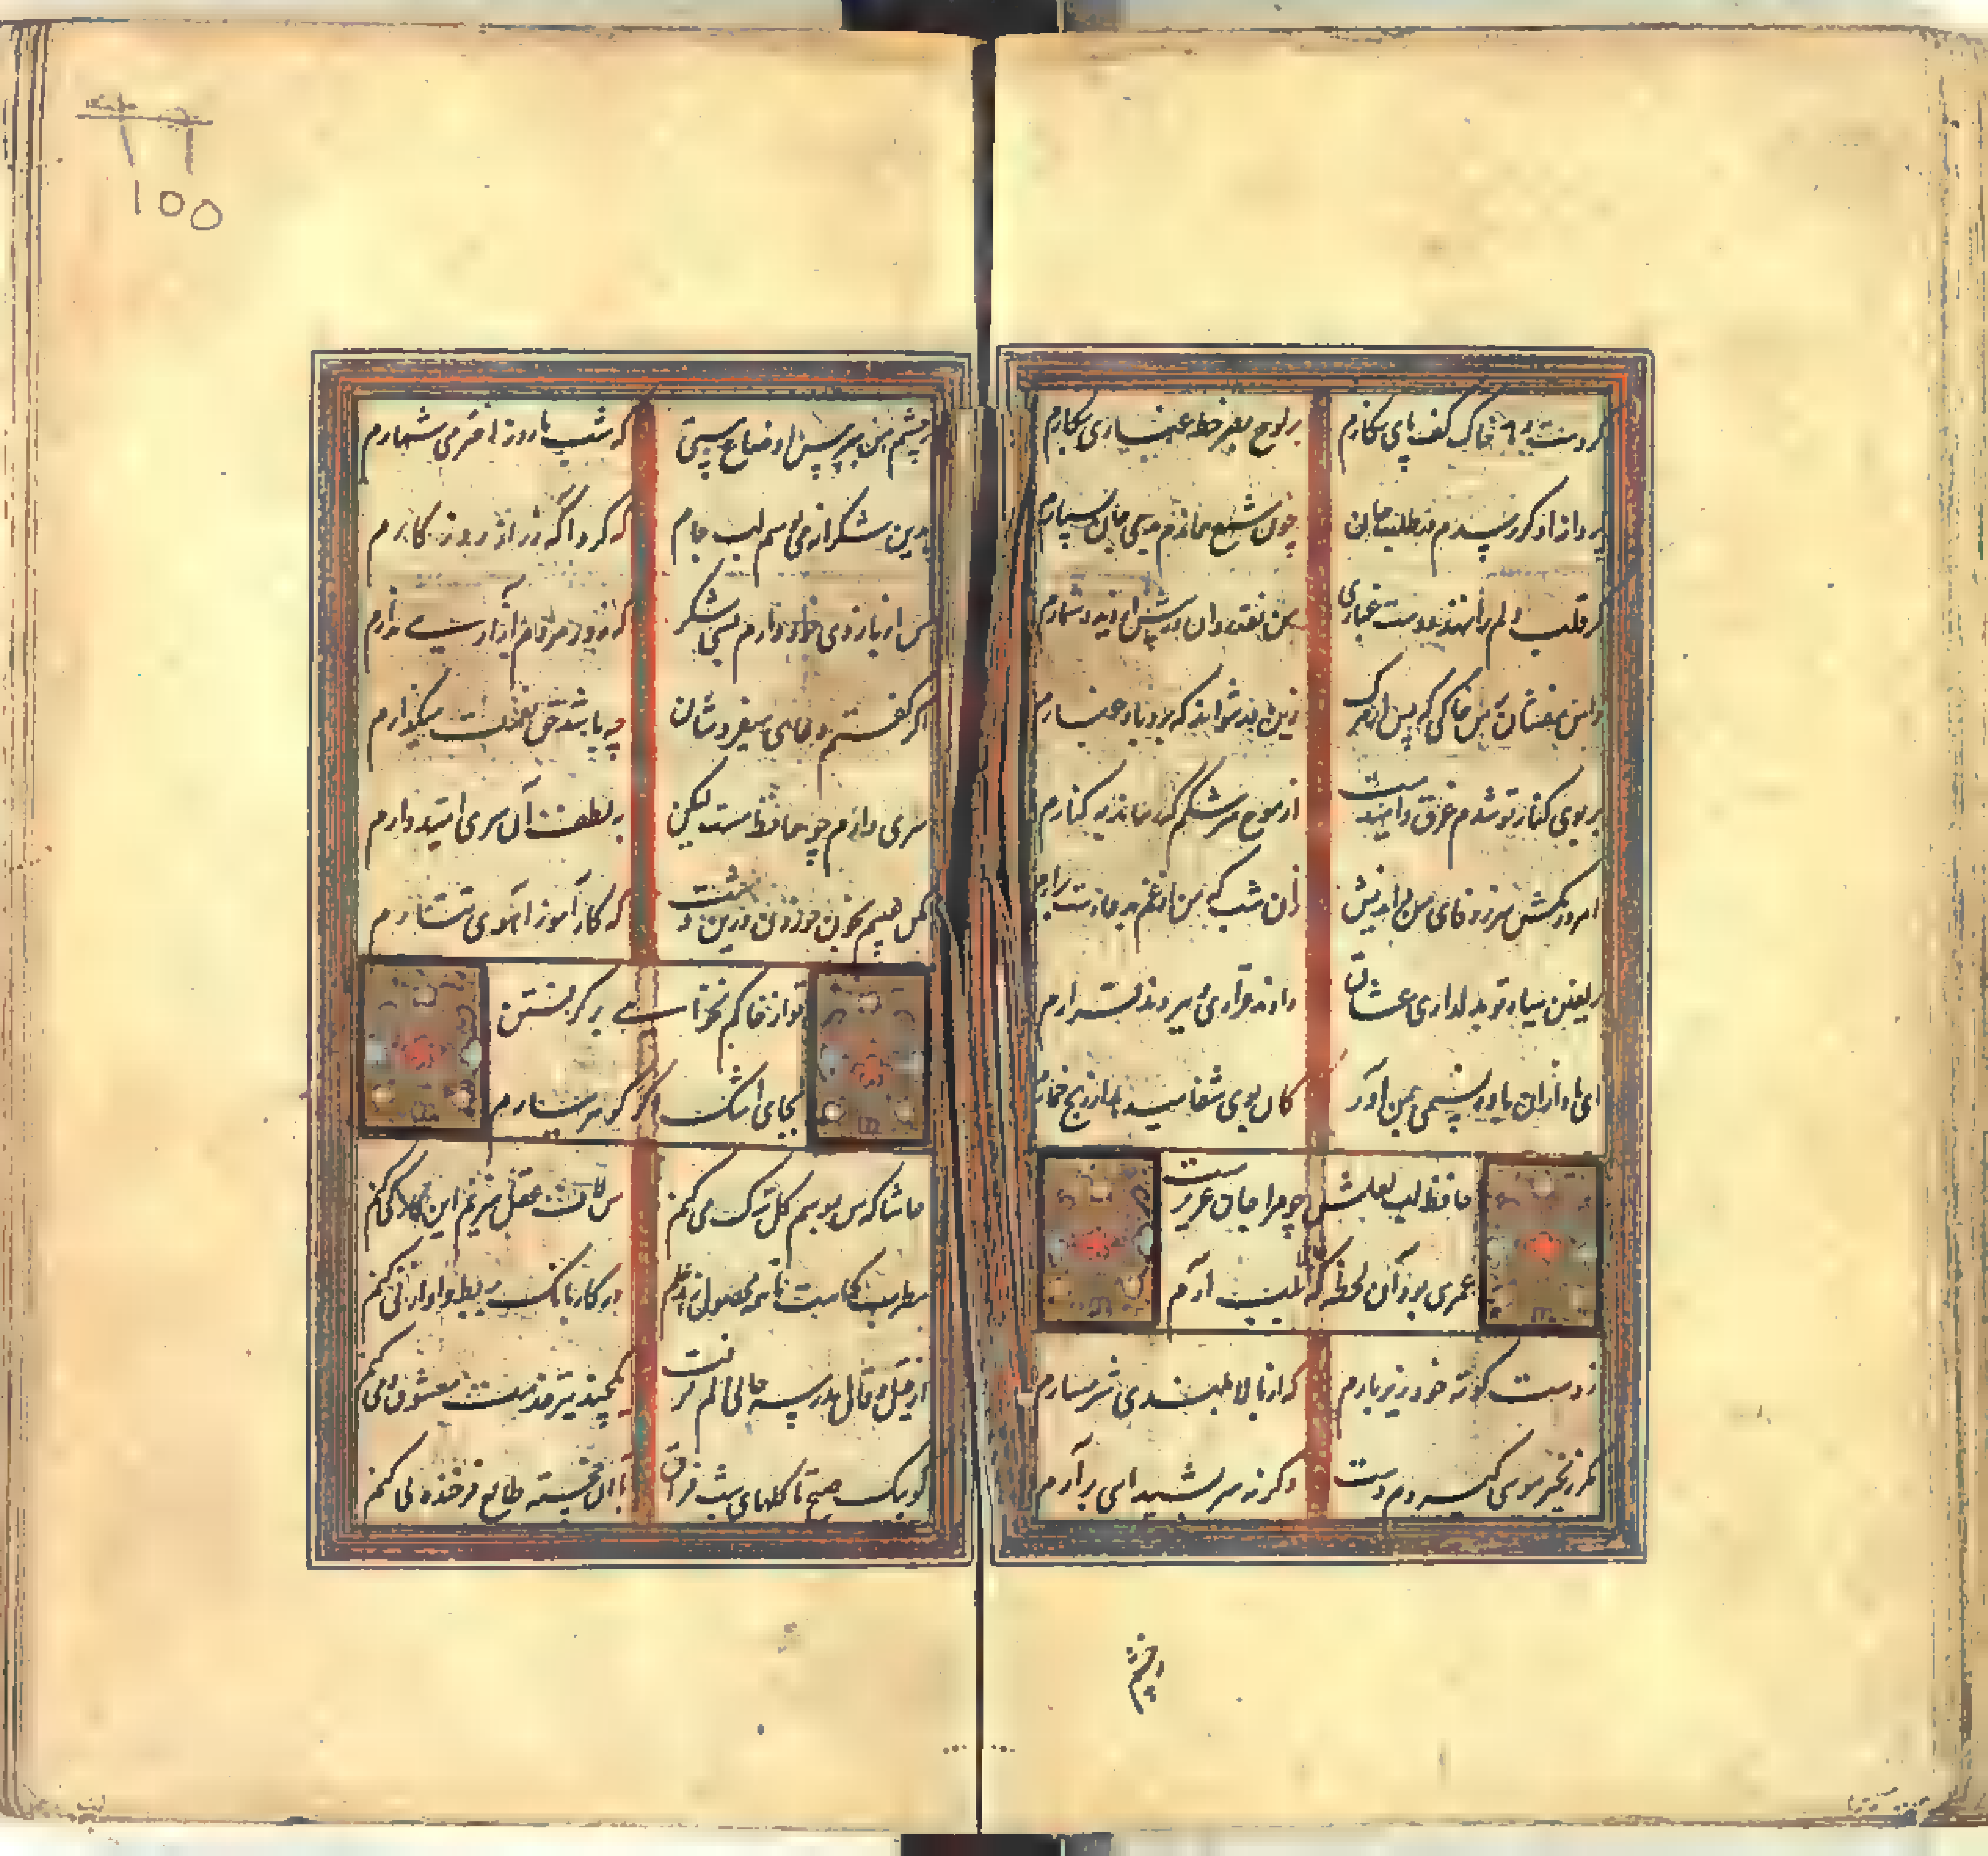 گر دست دهد خاک کف پای نگارم
بر لوح بصر خط غباری بنگارم
پروانه او گر رسدم در طلب جان
چون شمع همان دم بدمی جان بسپارم
گر قلب دلم را ننهد دوست عیاری
من نقد روان در رهش از دیده شمارم
دامن مفشان از من خاکی که پس از مرگ
زین در نتواند که برد باد غبارم
بر بوی کنار تو شدم غرق و امیدست
از موج سرشکم که رساند بکنارم
امروز مکش سر ز وفای من و اندیش
زان شب که من از غم بدعا دست برارم
زلفین سیاه تو بدلداری عشاق
دادند قراری و ببردند قرارم
ای باد از ان باده نسیمی بمن آور
کان بوی شفا میدهد از رنج خمارم
حافظ لب لعلش چو مرا جان عزیزست
عمری بود آن لحظه که بلب آرم
ز دست کوته خود زیر بارم
که از بالا بلندی شرمسارم
مگر زنجیر موی گیردم دست
وگرنه سر بشیدایی برآرم
ز چشم
ز چشم من بپرس اوضاع
که شب تا روز اختر می شمارم
بدین شکرانه می بوسم لب جام
که کرد آگه ز راز روزگارم
من از بازوی خود دارم بسی شکر
که زور مردم آزاری ندارم
اگر گفتم دعای میفروشان
چه باشد حق نعمت میگذارم
سری دارم چو حافظ مست لیکن
بلطف آن سری امیدوارم
مکن عیبم بخون خوردن درین دشت
که کار آموز آهوی تتارم
تو از خاکم نخواهی برگرفتن
بجای اشک اگر گوهر ببارم
حاشا که من بموسم گل ترک می کنم
من لاف عقل میزنم این کار کی کنم
مطرب کجاست تا همه محصول زهد و علم
در کار بانگ بربط و آواز نی کنم
از قیل و قال مدرسه حالی دلم گرفت
یکچند نیز خدمت معشوق و می کنم
کو پیک صبح تا گلهای شب فراق
با آن خجسته طالع فرخنده پی کنم
100